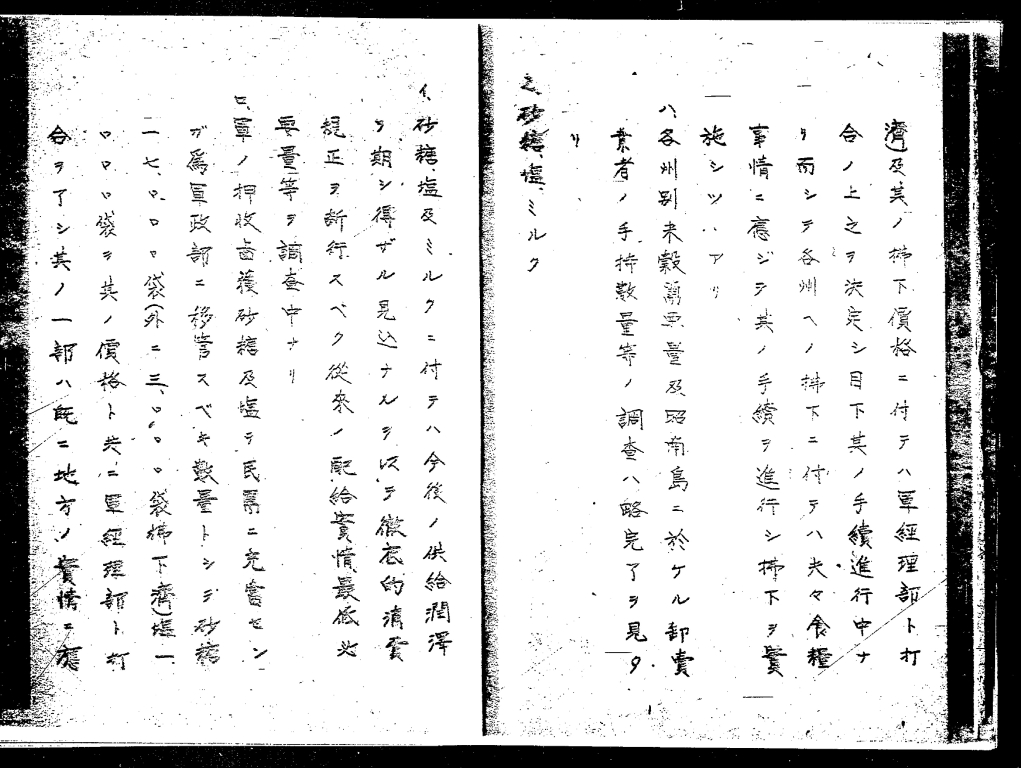 濟)及其ノ拂下價格ニ付テハ軍經理部ト打
合ノ上之ヲ決定シ目下其ノ手續進行中ナ
リ而シテ各州ヘノ拂下ニ付テハ夫々食糧
事情ニ應ジテ其ノ手續ヲ進行シ拂下ヲ實
施シツヽアリ
ハ、各州別米穀需要量及昭南島ニ於ケル卸賣
業者ノ手持數量等ノ調査ハ略完了ヲ見タ
リ
2、砂糖、塩、ミルク
イ、砂糖、塩及ミルクニ付テハ今後ノ供給潤澤
ヲ期シ得ザル見込ナルヲ以テ徹底的消費
規正ヲ断行スベク從來ノ配給實情最低必
要量等ヲ調査中ナリ
ロ、軍ノ押收鹵獲砂糖及塩ヲ民需ニ充當セン
ガ爲軍政部ニ移管スベキ數量トシテ砂糖
一七、〇〇〇袋(外ニ三、〇〇〇袋拂下濟)塩一
〇〇〇袋ヲ其ノ價格ト共ニ軍經理部ト打
合ヲ了シ其ノ一部ハ既ニ地方ノ實情ニ應